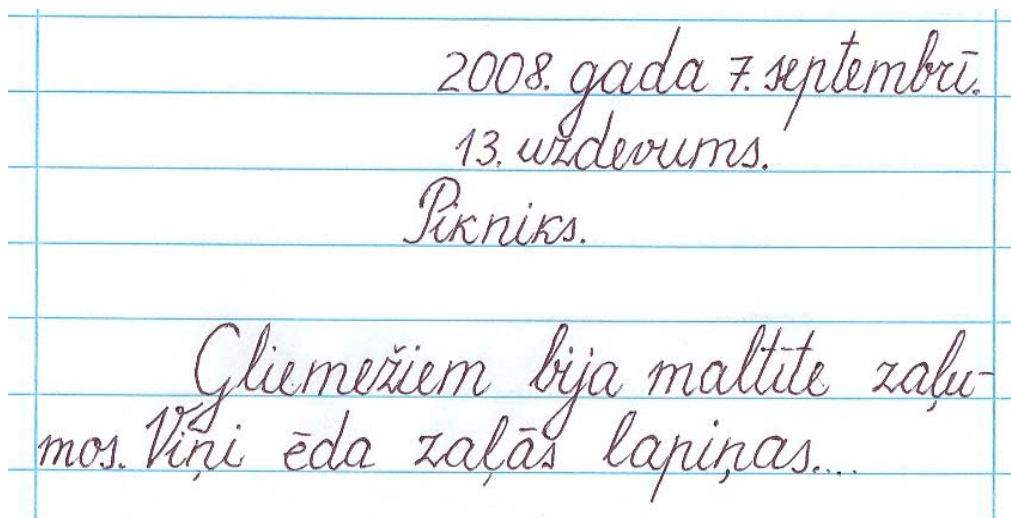 2008. gada 7. septembrī.
13. uzdevums.
Pikniks.
Gliemežiem bija maltīte zaļu-
mos. Viņi ēda zaļās lapiņas....